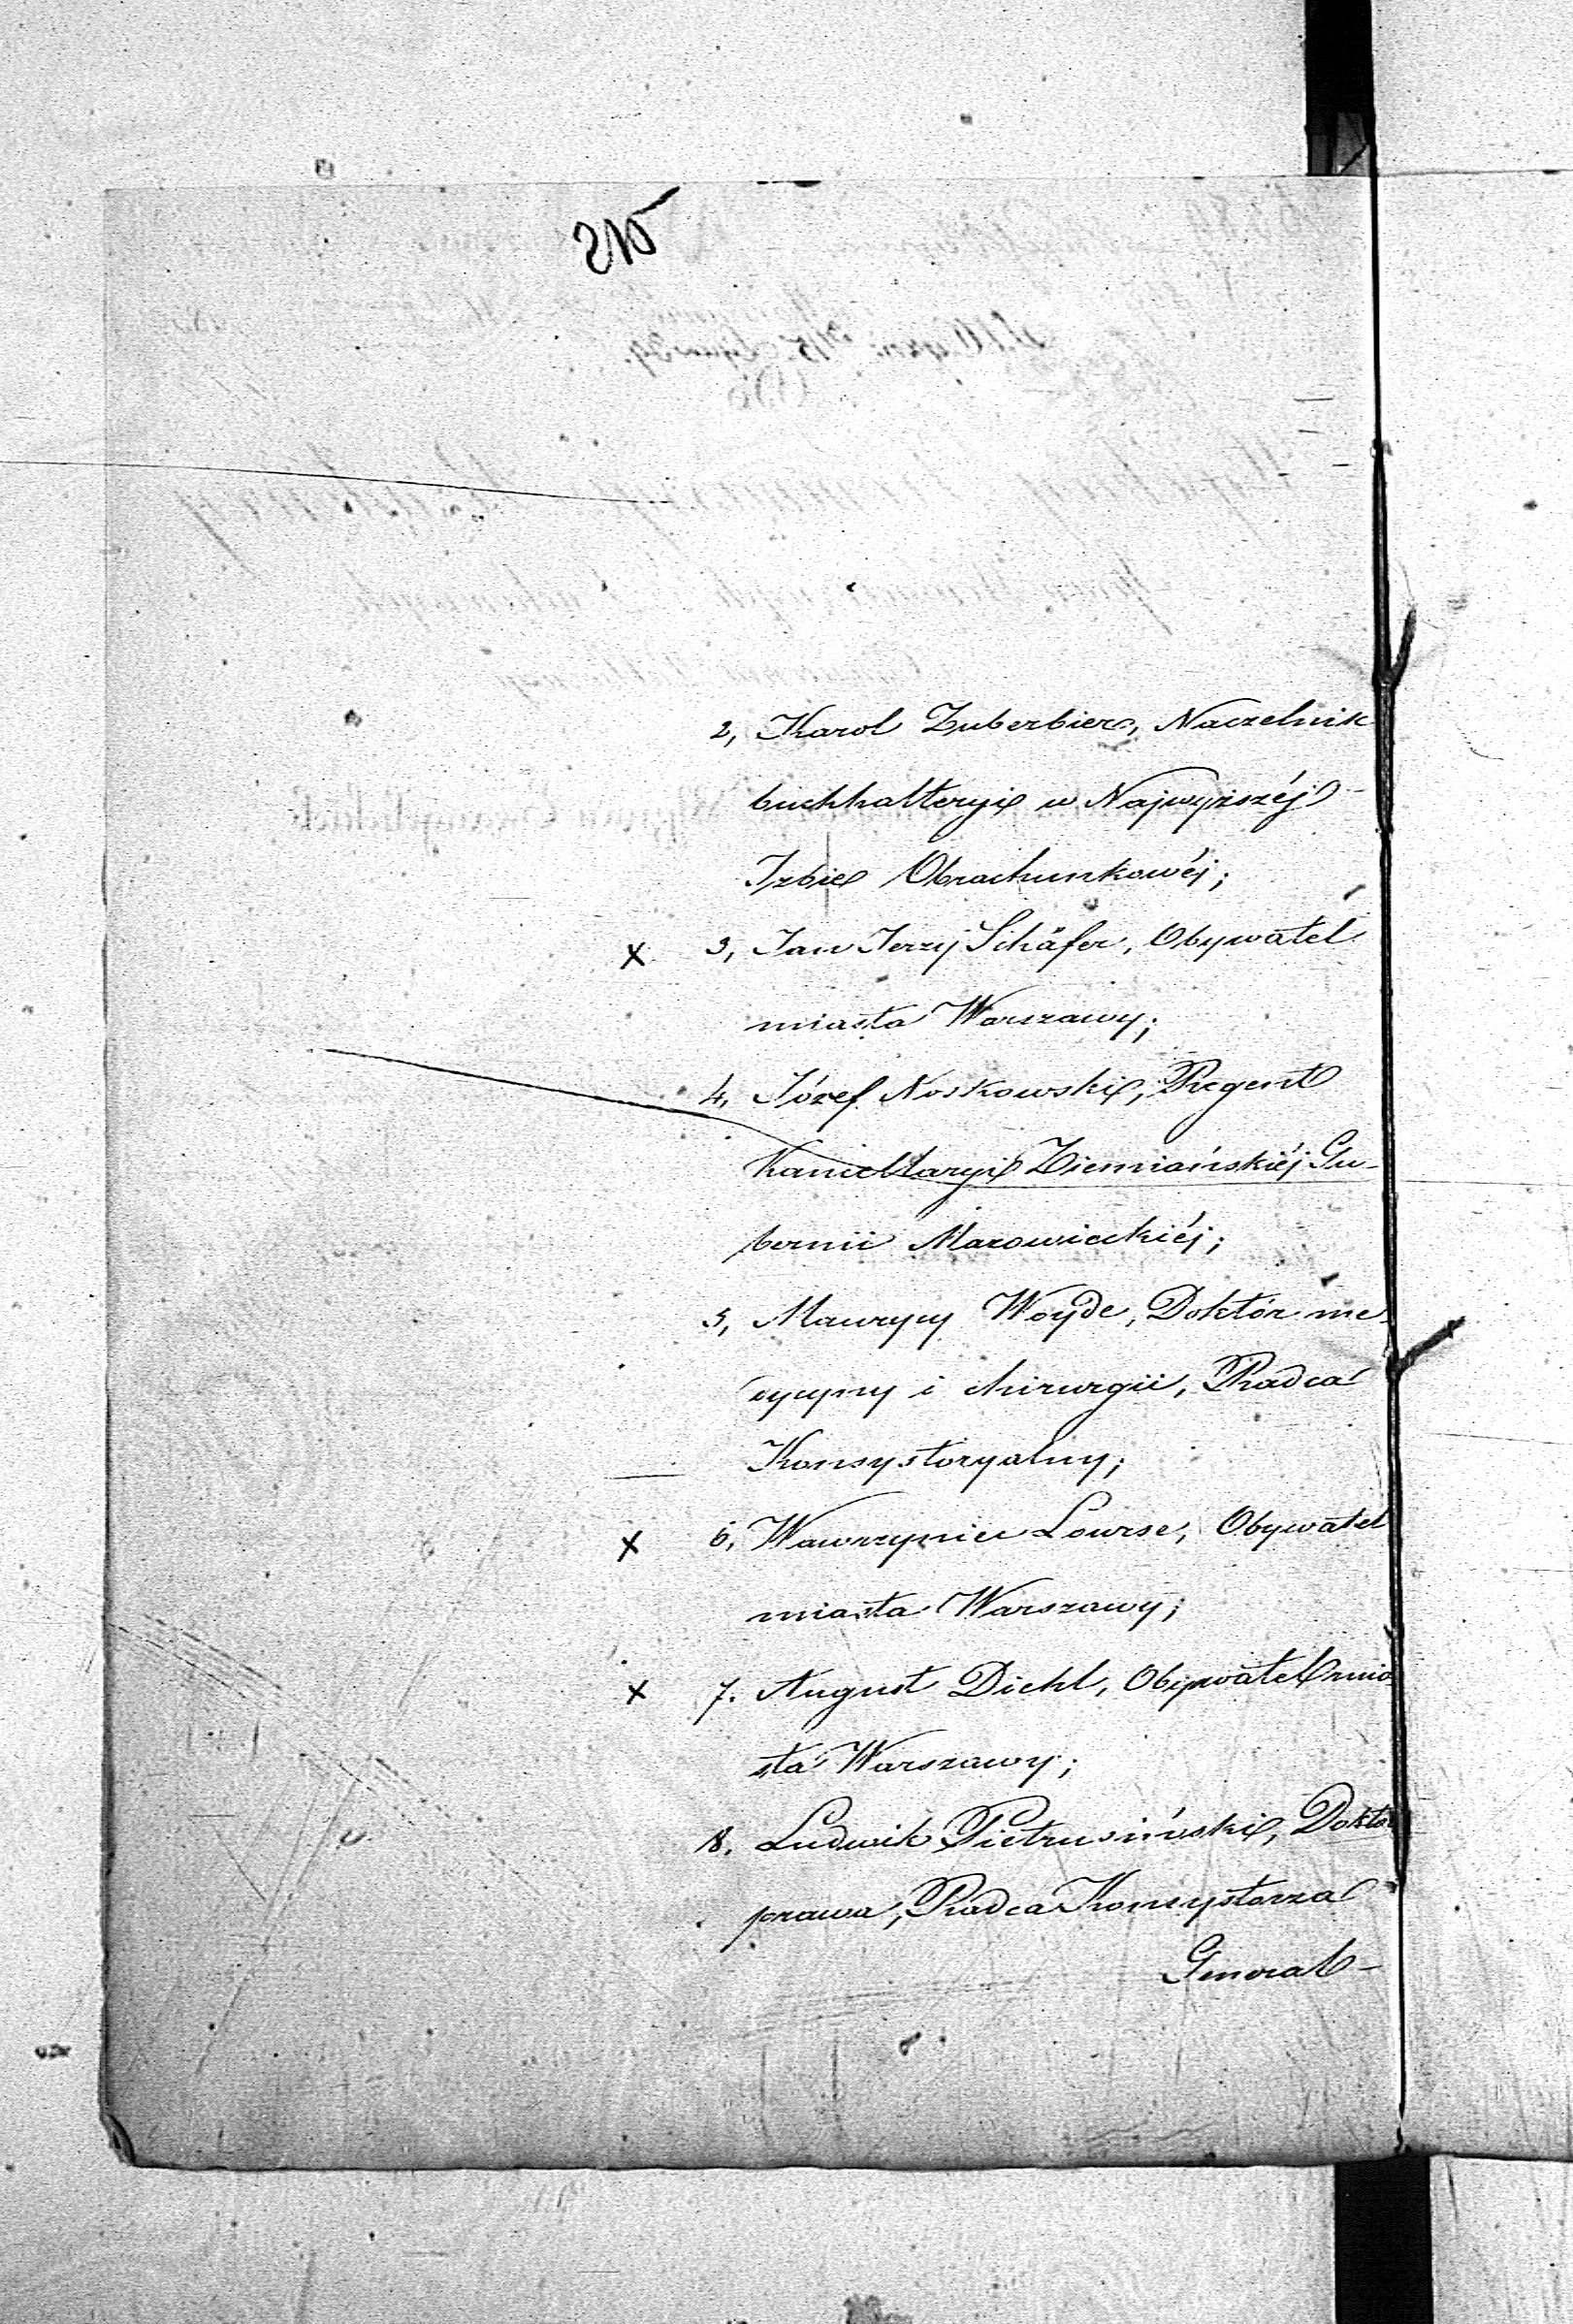 2, Karol Zuberbier, Naczelnik
buchhalteryi w Najwyższéj
Izbie Obrachunkowéj;
x 3, Jan Jerzy Schäfer, Obywatel
miasta Warszawy;
4, Józef Noskowski, Regent
Kancellaryi Ziemiańskiéj Gu-
bernii Mazowieckiéj;
5, Maurycy Woyde, Doktór me-
dycyny i chirurgii, Radca
Konsystoryalny;
x 6, Wawrzyniec Lourse, Obywatel
miasta Warszawy;
x 7. August Diehl, Obywatel mia-
sta Warszawy;
8. Ludwik Pietrusiński, Doktór
prawa, Radca Konsystorza
General-